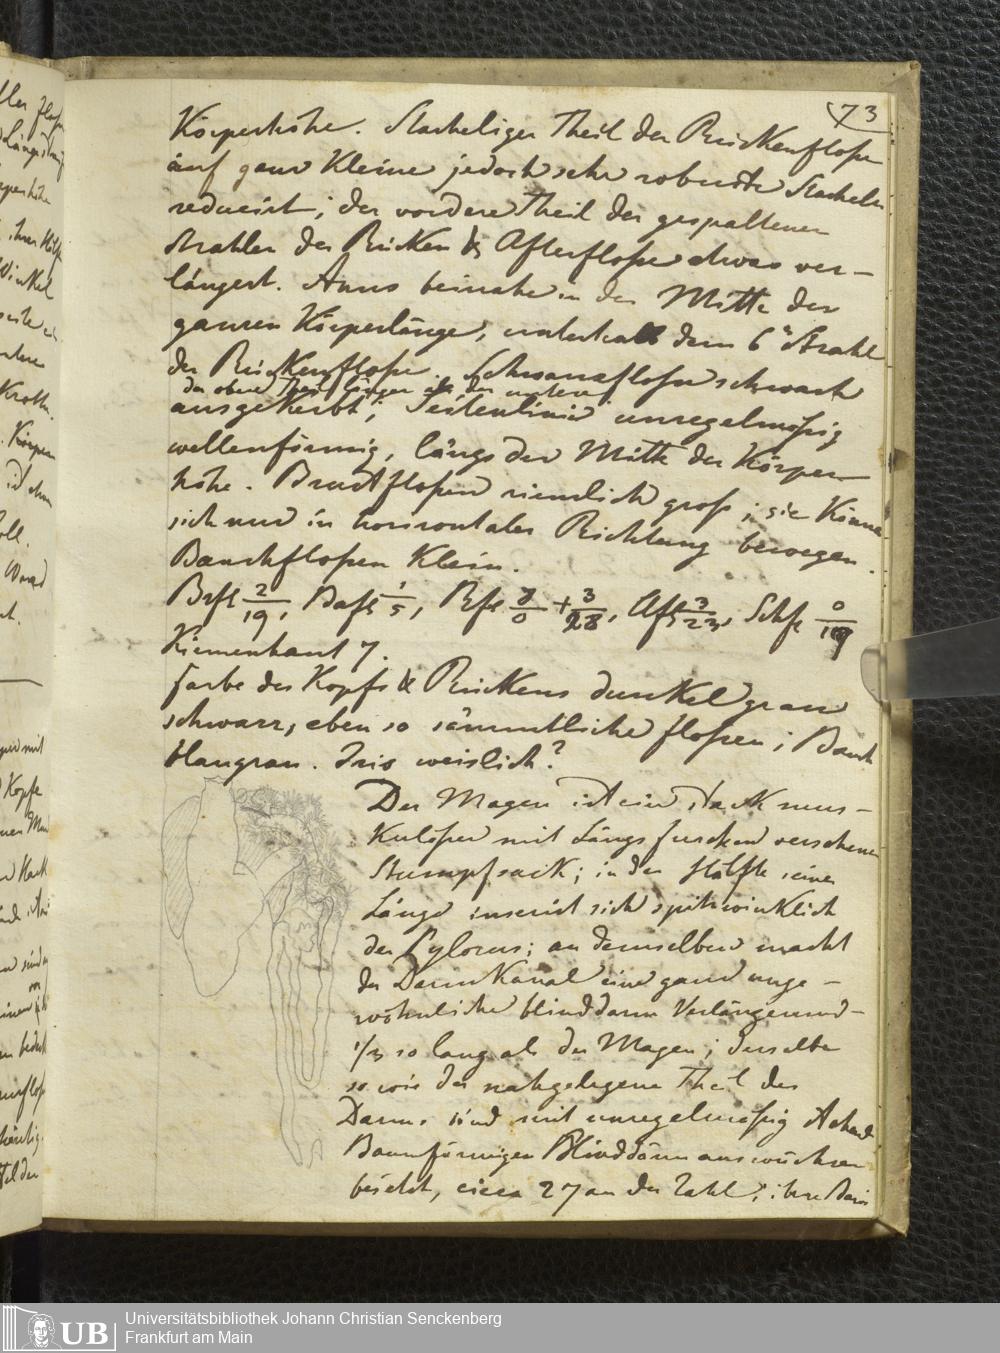 73
Körperhöhe. Stacheliger Theil der Rückenflosse
auf ganz Kleine jedoch sehr robuste Stacheln
reducirt; der vordere Theil der gespaltenen
Strahlen der Rücken & Afterflosse etwas ver-
längert. Anus beinahe in der Mitte der
ganzen Körperlänge, unterhalb dem 6ⁿ Strahl
der Rückenflosse. Schwanzflosse schwach
der obere Theil länger als der untere
ausgekerbt; Seitenlinie unregelmässig
wellenförmig, längs der Mitte der Körper-
höhe. Brustflossen ziemlich gross; sie Könne
sich nur in horizontaler Richtung bewegen.
Bauchflossen Klein.
Brfl 2/19, Bafl 1/5, Rfl 7/0 + 3/28, Afl 3/23, Schfl 0/19
Kiemenhaut 7.
Farbe des Kopfs & Rückens dunkel grau
schwarz, eben so sämmtliche flossen; Bauch
blaugrau. Iris weislich?
Der Magen ist ein stark mus-
kulöser mit Längsfurchen versehener
Stumpfsack; in der Hälfte seiner
Länge inserirt sich spitzwinklich
der Pylorus; an demselben macht
der Darmkanal eine ganz unge-
wöhnliche blinddarm Verlängerung
1/3 so lang als der Magen; derselbe
so wie der nahgelegene Theil des
Darms sind mit unregelmässig
Baumförmigen Blinddärm auswüchsen
besetzt, circa 27 an der Zahl; ihre
Universitätsbibliothek Johann Christian Senckenberg
Frankfurt am Main
UB